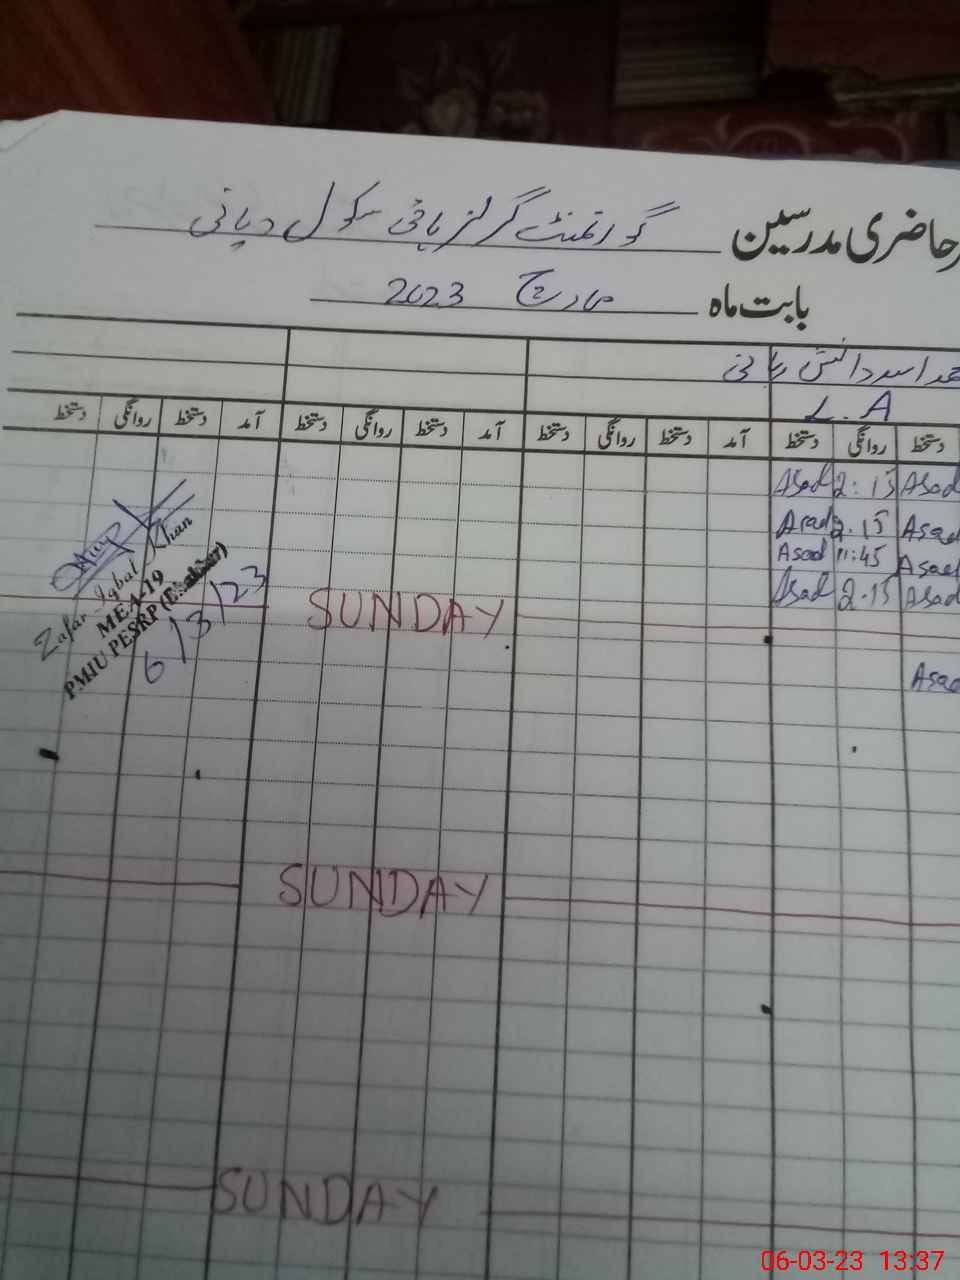 حاضری مدرسین گورنمنٹ گرلز ہائی سکول
بابت ماہ مارچ 2023
اسد دانش ربانی
L.A
دستخط روانگی دستخط آمد دستخط روانگی دستخط آمد دستخط روانگی دستخط آمد دستخط روانگی دستخط
Asad 2:15 Asad
Asad 2.15 Asad
Asad 11:45 Asad
Asad 2.15 Asad
SUNDAY
Asad
Zafar Iqbal Khan
MEA-19
PMIU PESRP
6/3/23
SUNDAY
SUNDAY
06-03-23 13:37